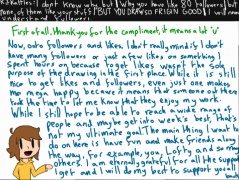 don't know why but Why you have like 80 followers but
none of them like your stuff BUT YOU DRAW SO FRIGIN GOOD! I will never
understand followers
First of all, thank you for the compliment, it means a lot ˇuˇ
Now, onto followers and likes. I don't really mind if I don't
have many followers or just a few likes on something I
spent hours on because to get likes wasn't the sole
purpose of the drawing in the first place. While it is still
nice to get likes and followers, even just one makes
me mega happy because it means that someone out there
took the time to let me know that they enjoy my work.
While I still hope to be able to reach a wide range of
people and maybe get into a week's best, that's
not my ultimate goal. The main thing I want to
do on here is have fun and make friends along
the way, for example, you, Lofty and so many
others. I am eternally grateful for all the support
I get and I will do my best to support you